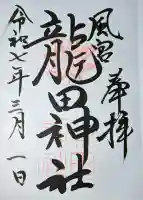 奉拝
風宮
龍田神社
令和七年三月一日